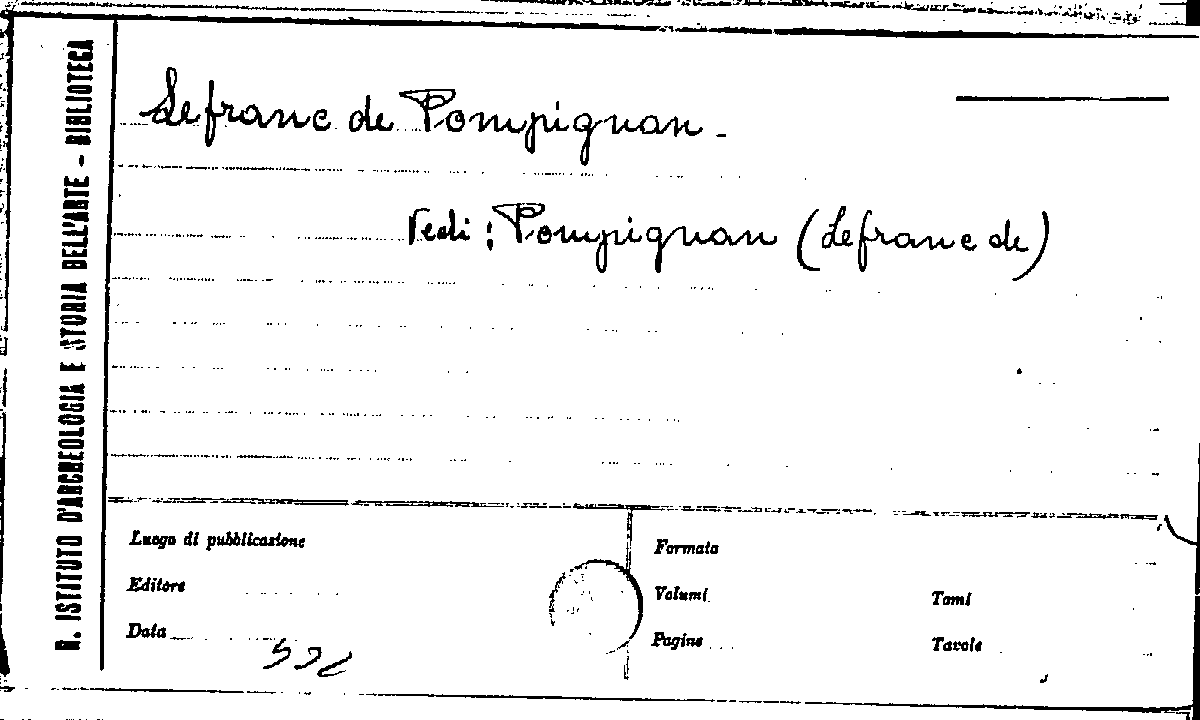 R. ISTITUTO D'ARCHEOLOGIA E STORIA DELL'ARTE - BIBLIOTECA
Lefranc de Pompignan -
Vedi: Pompignan (Lefranc de)
Luogo di pubblicazione
Editore
Data
Formato
Volumi
Tomi
Pagine
Tavole